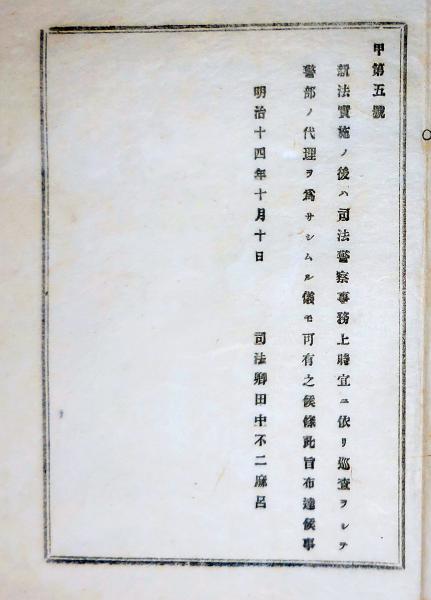 甲第五號
新法實施ノ後ハ司法警察事務上時宜ニ依リ巡査ヲシテ
警部ノ代理ヲ爲サシムル儀モ可有之候條此旨布達候事
明治十四年十月十日　司法卿田中不二麻呂